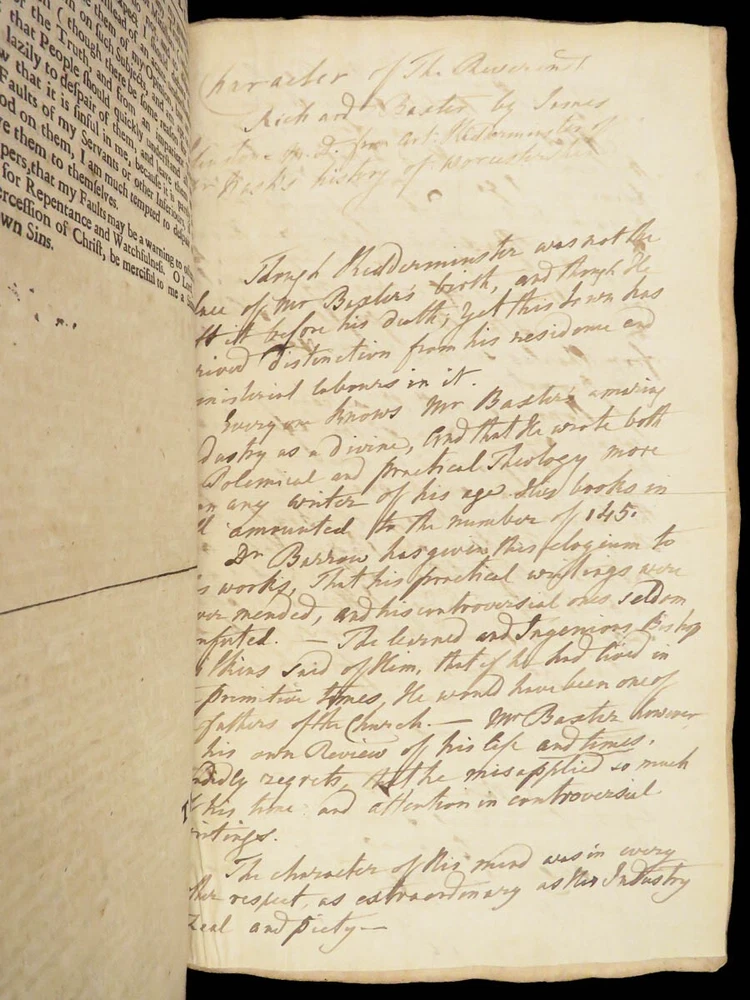 them of my Opinion
(though there be some reason
of the Truth, and from an impatient
that People should quickly understand
lazily to despair of them, and leave them
that it is sinful in me, because it is
Faults of my Servants or other Inferiours
on them, I am much tempted to
them to themselves.
pers, that my Faults may be a warning to
for Repentance and Watchfulness. O Lord
ercession of Christ, be merciful to me a
wn Sins.
Character of The Reverend
Richard Baxter by James
m.d. from art: Kidderminster of
Nash's history of Worcestershire
Though Kidderminster was not the
lace of Mr Baxter's birth, and though He
ft it before his death, yet this town has
rived distinction from his residence and
inisterial labours in it.
Every one knows Mr Baxter's amazing
dustry as a divine, and that He wrote both
Polemical and practical Theology more
an any writer of his age. His books in
ll amounted to the number of 145.
Dr Barrow has given this elogium to
is works, That his practical writings were
ver mended, and his controversial ones seldom
nfuted. — The learned and Ingenious Bishop
ilkins said of Him, that if he had lived in
primitive times, He would have been one of
fathers of the Church. — Mr Baxter however
his own Review of his life and times,
ndidly regrets, that he misapplied so much
his time and attention in controversial
ritings.
The character of His mind was in every
ther respect, as extraordinary as His Industry
Zeal and piety —